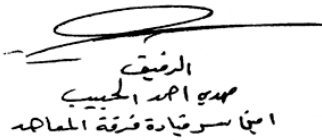 الرفيق
مهدي احمد الحبيب
امين سر قيادة فرقة المعاهد